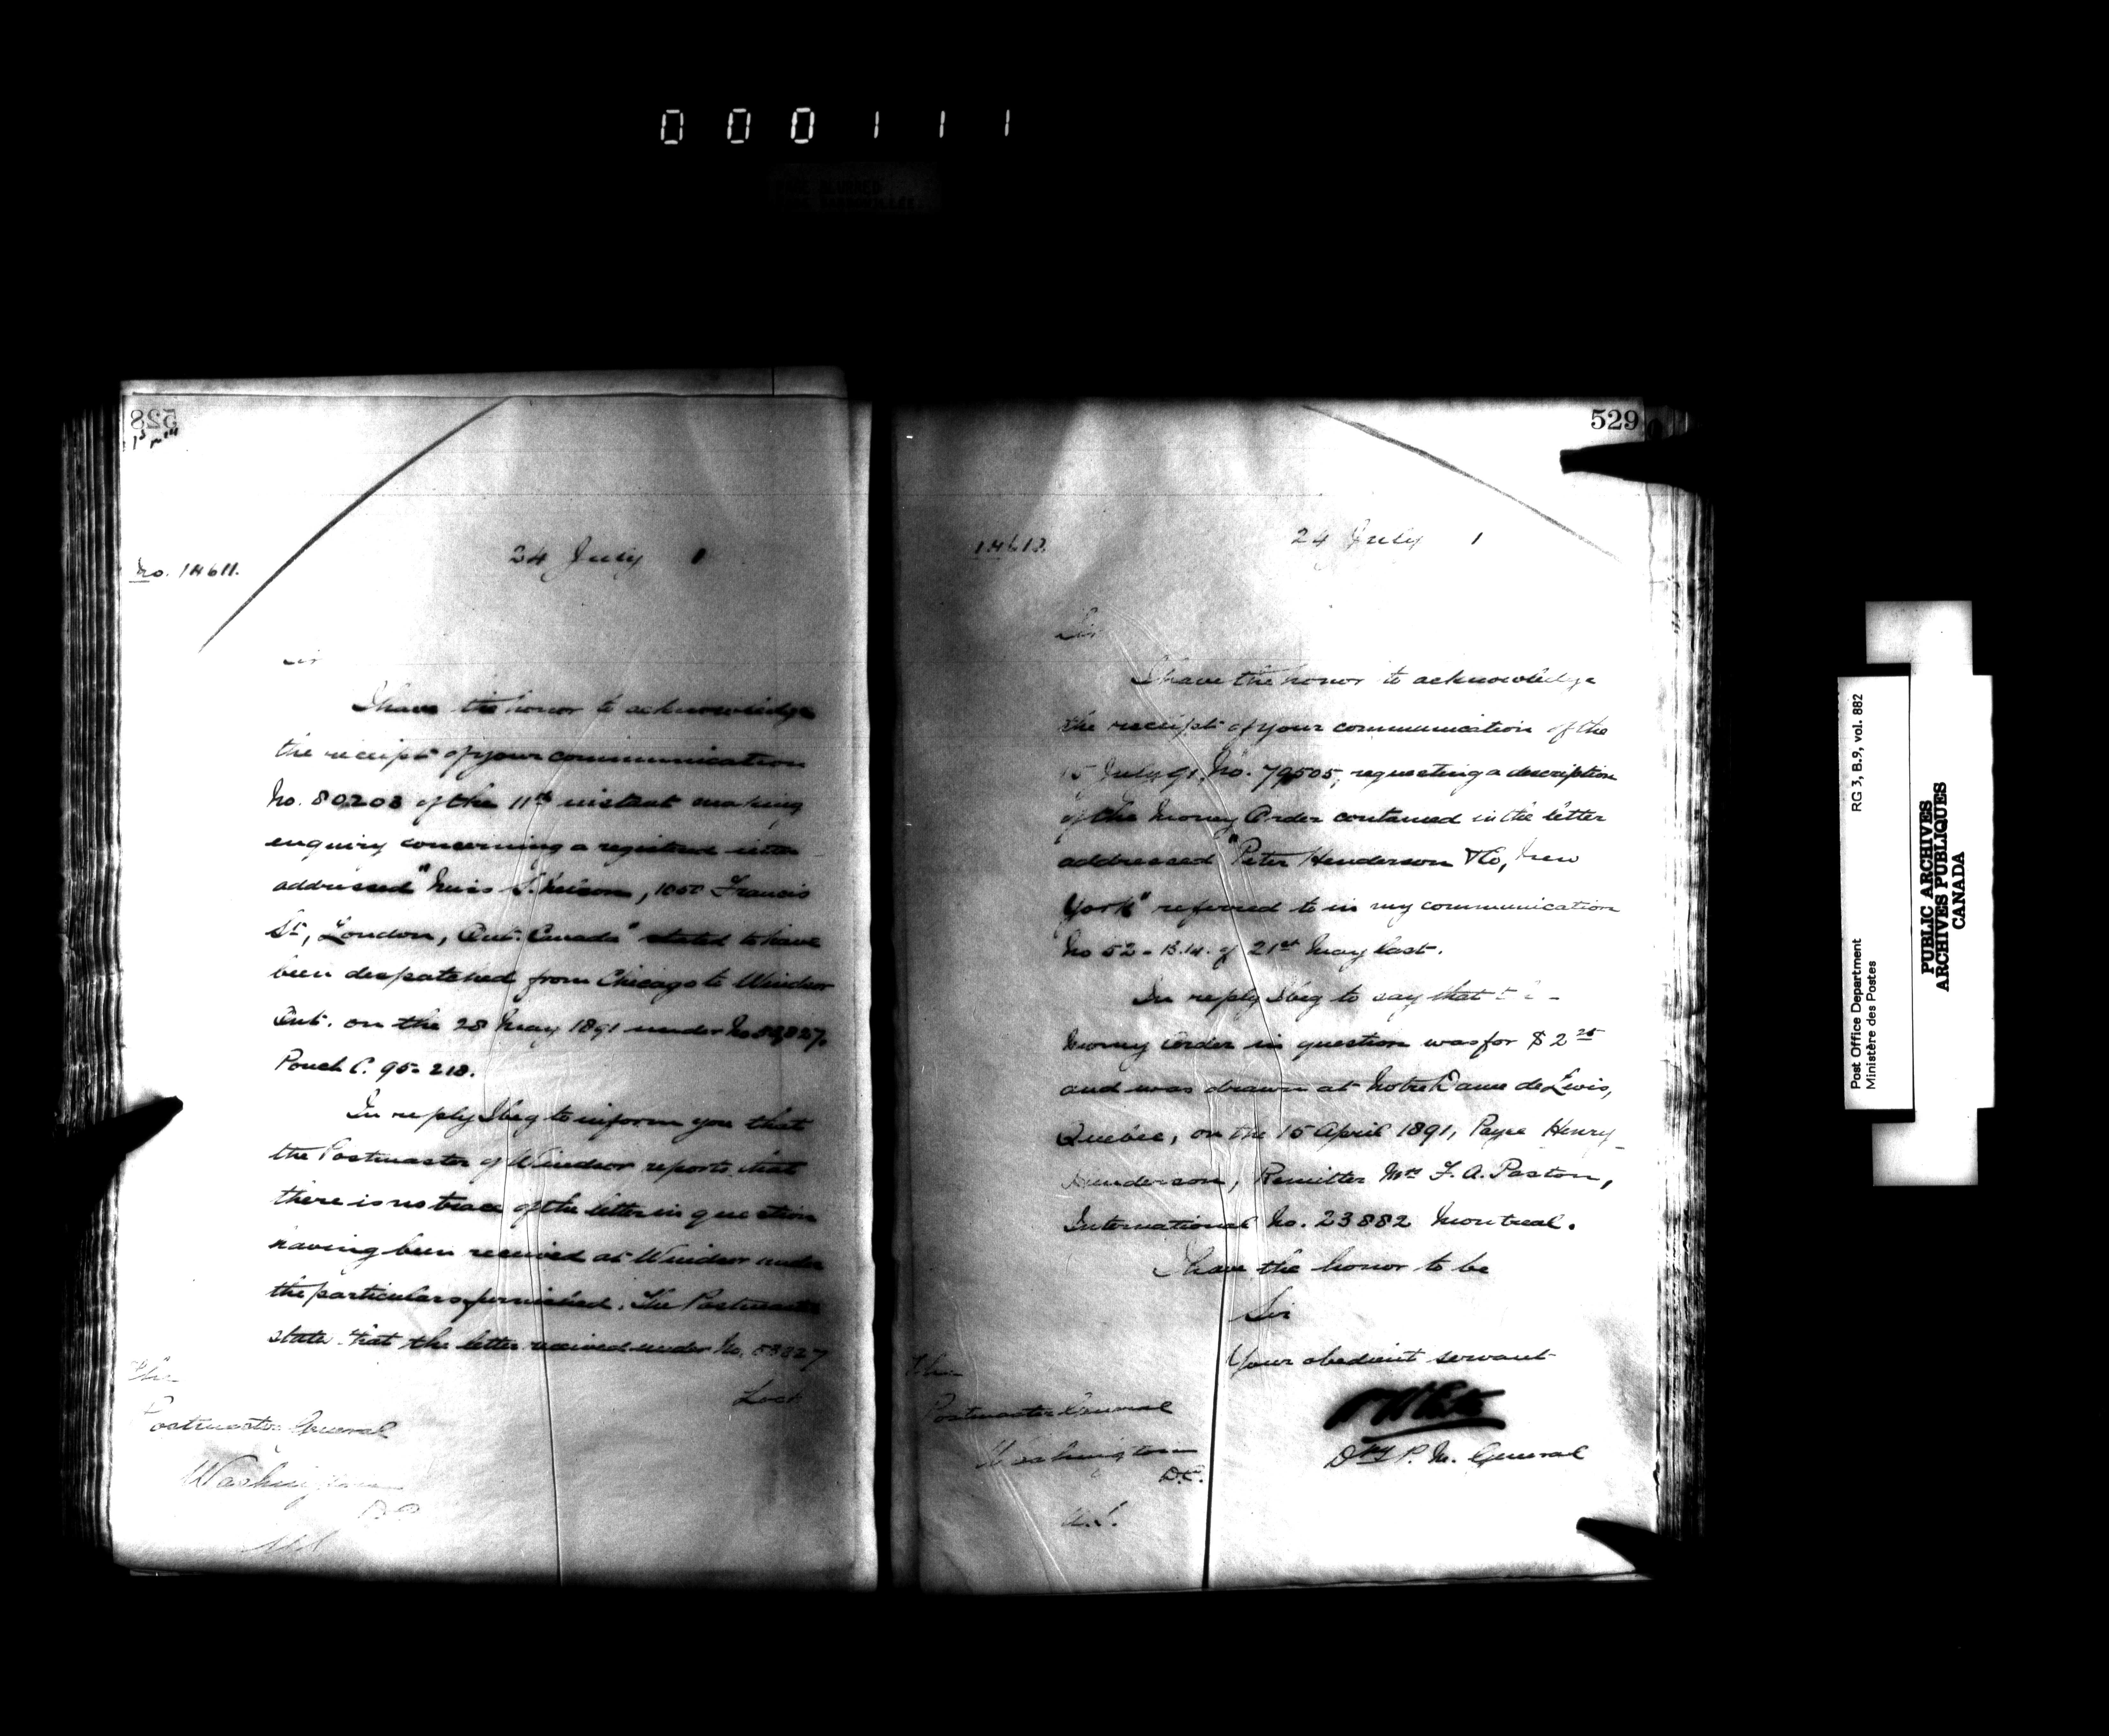 0 0 0 1 1 1
528
No. 14611.
24 July 1
Sir
I have the honor to acknowledge
the receipt of your communication
No. 80203 of the 11th instant making
enquiry concerning a registered letter
addressed "Miss S. , 1050 Francis
St, London, Ont. Canada" stated to have
been despatched from Chicago to Windsor
Ont. on the 28 May 1891 under No
Pouch C. 95-218.
In reply I beg to inform you that
the Postmaster of Windsor reports that
there is no trace of the letter in question
having been received at Windsor under
the particulars furnished. The Postmaster
states that the letter received under No.
The
Postmaster General
Washington
D.C.
529
24 July 1
Sir
I have the honor to acknowledge
the receipt of your communication of the
15 July 91, No. 79505, requesting a description
of the Money Order contained in the letter
addressed "Peter Henderson & Co, New
York" referred to in my communication
No 52-B.14. of 21st May last.
In reply I beg to say that the
Money Order in question was for $2 25
and was drawn at Notre Dame de Levis,
Quebec, on the 15 April 1891, Payee Henry
Henderson, Remitter Mrs F. A. Paston,
International No. 23882 Montreal.
I have the honor to be
Sir
Your obedient servant
Dty P. M. General
The
Postmaster General
Washington
D.C.
Post Office Department RG 3, B.9, vol. 882
Ministère des Postes
PUBLIC ARCHIVES
ARCHIVES PUBLIQUES
CANADA